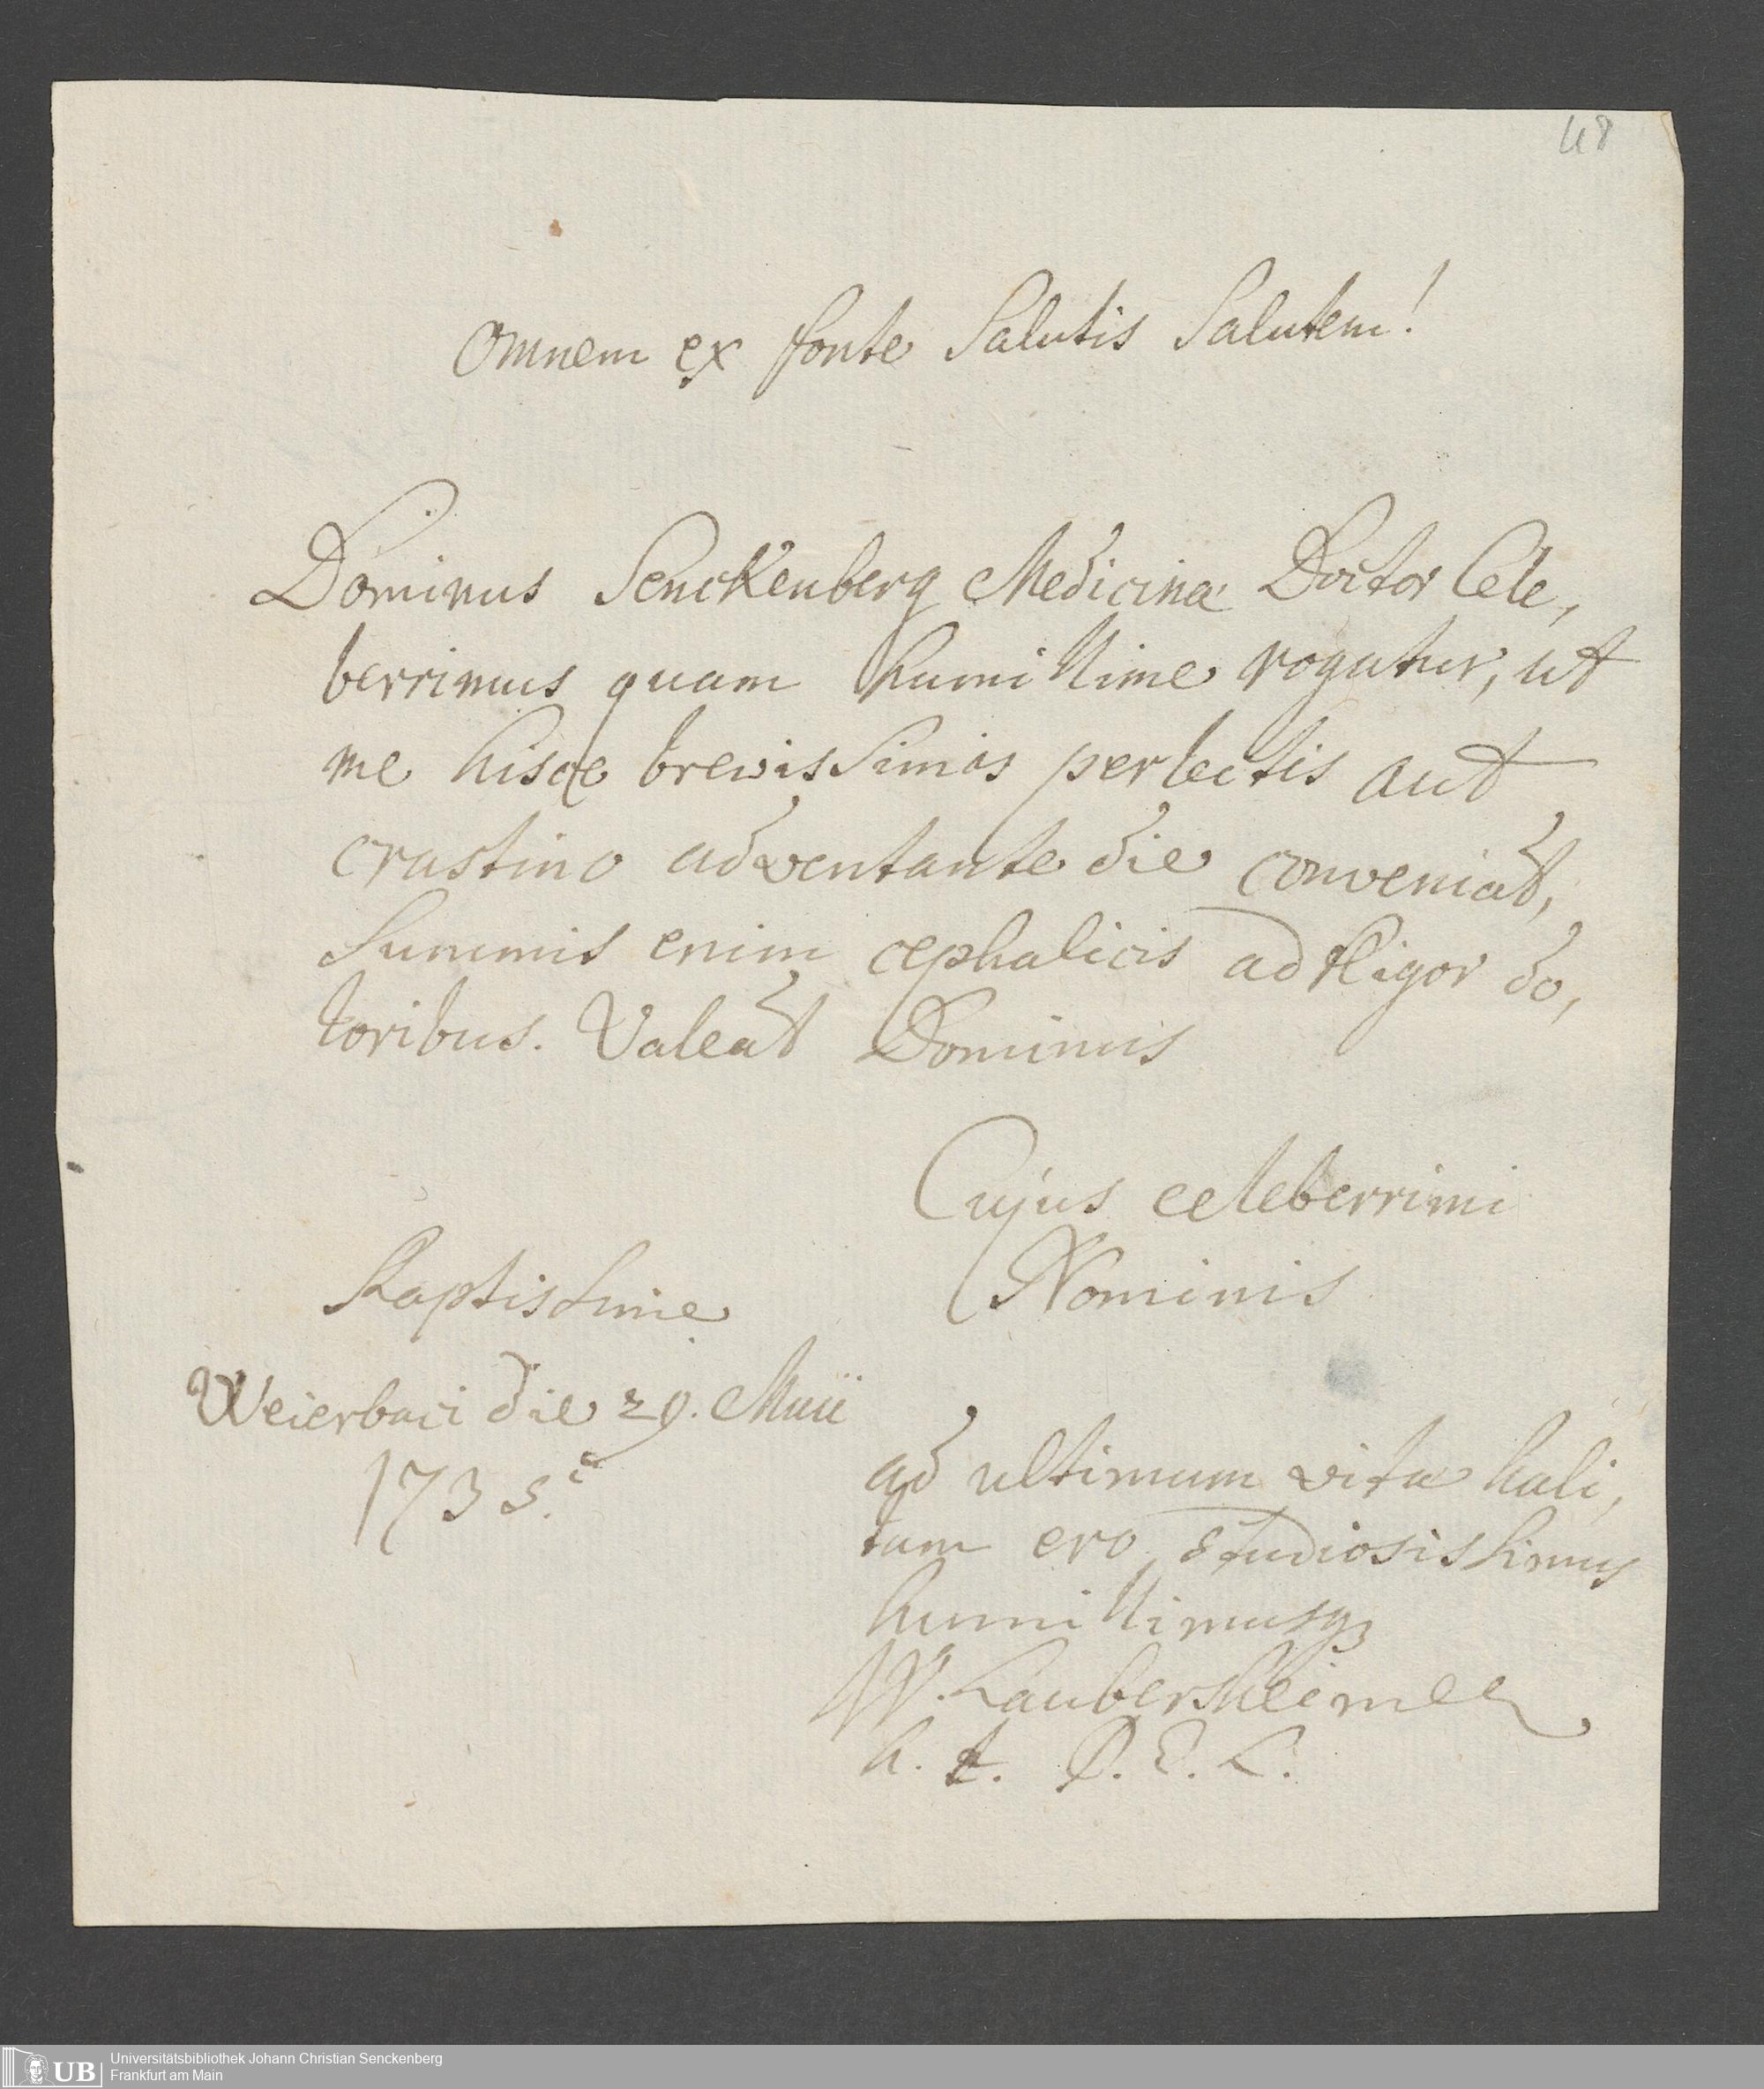 48
Omnem ex fonte Salutis Salutem!
Dominus Senckenberg Medicinæ Doctor Cele,
berrimus quam humillime rogatur, ut
me hisce brevissimis perlectis aut
crastino adventante die conveniat,
Summis enim cephalicis adfligor do,
loribus. Valeat Dominus
Cujus celeberrimi
Nominis
Raptissime
Weierbaci die 29. Maii
1735.
ad ultimum vitæ hali,
tum ero studiosissimus
humillimusq3
W. Laubersheimer
h. t. P. E. L.
UB
Universitätsbibliothek Johann Christian Senckenberg
Frankfurt am Main